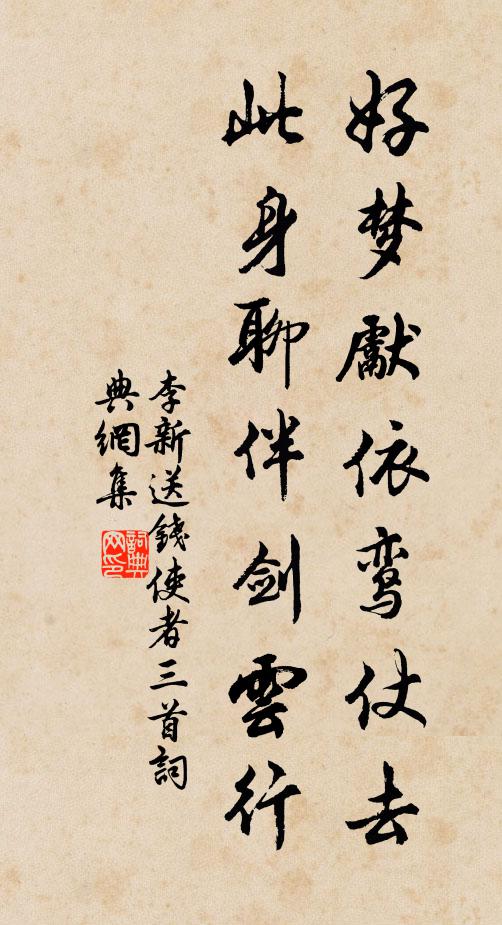 好梦献依鸾仗去
此身聊伴剑雲行
李新送錢使者三首詞
典網集
詞典
网印